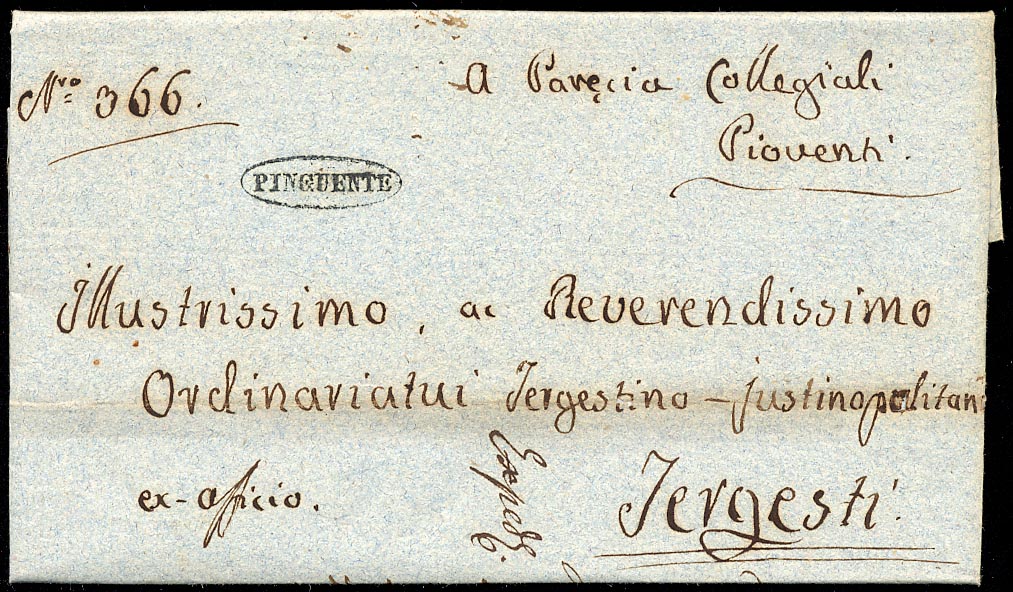 Nro 366.
A Paręcia Collegiali
Pioventi.
PINGUENTE
Illustrissimo, ac Reverendissimo
Ordinariatui Tergestino - Justinopolitano
ex-officio.
Tergesti.